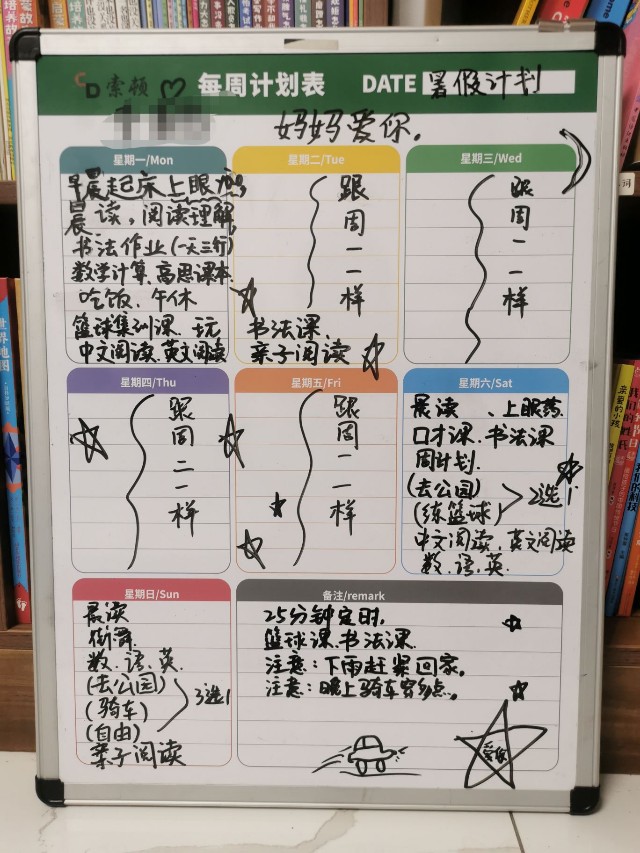 索顿
每周计划表
DATE 暑假计划
妈妈爱你。
星期一/Mon
早晨起床上眼药
晨读，阅读理解
书法作业(一天三行)
数学计算、高思课本
吃饭、午休
篮球集训课、玩
中文阅读、英文阅读
星期二/Tue
跟周一一样
书法课
亲子阅读
星期三/Wed
跟周一一样
星期四/Thu
跟周二一样
星期五/Fri
跟周一一样
星期六/Sat
晨读、上眼药
口才课、书法课
周计划
(去公园)
(练篮球)
2选1
中文阅读、英文阅读
数、语、英
星期日/Sun
晨读
街舞
数、语、英
(去公园)
(骑车)
(自由)
3选1
亲子阅读
备注/remark
25分钟定时，
篮球课、书法课
注意：下雨赶紧回家。
注意：晚上骑车穿多点。
爱你